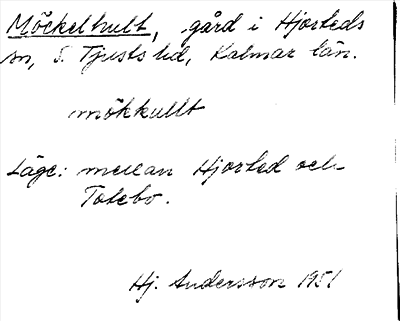 Möckelhult, gård i Hjorteds
sn, S. Tjusts hd, Kalmar län.
mökkullt
Läge: mellan Hjorted och
Totebo.
Hj. Andersson 1951